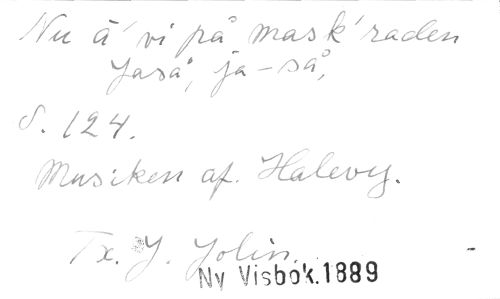 Nu ä' vi på mask'raden
Jaså, ja-så,
S. 124.
Musiken af. Halevy.
Tx. J. Jolin.
Ny Visbok.1889